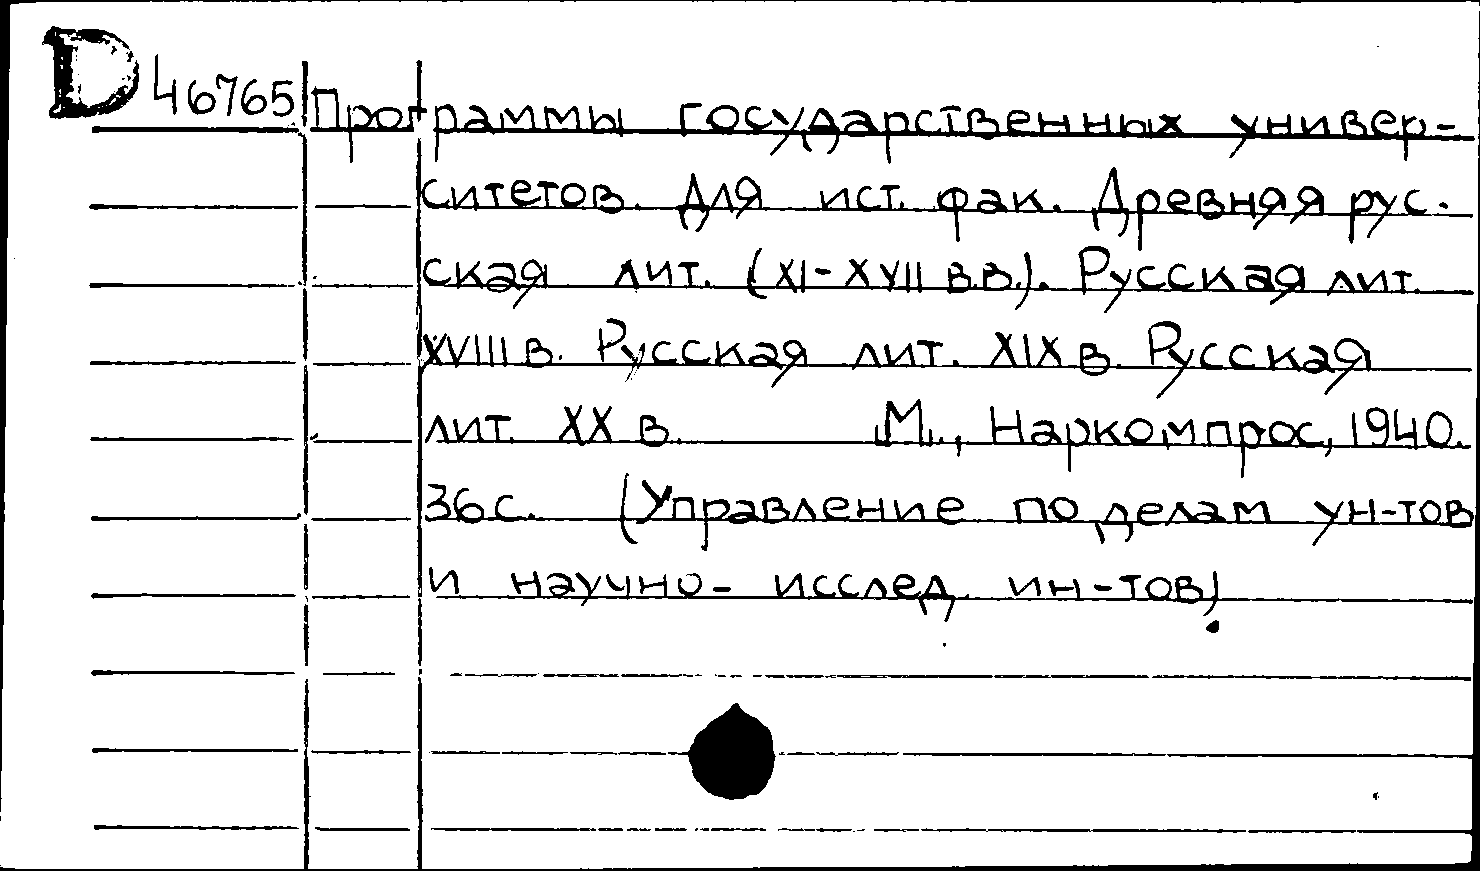 D 46765 Программы государственных универ-
ситетов. Для ист. фак. Древняя рус-
ская лит. (XI-XVII в.в.). Русская лит.
XVIII в. Русская лит. XIX в. Русская
лит. XX в. М., Наркомпрос, 1940.
36 с. (Управление по делам ун-тов
и научно-исслед. ин-тов).